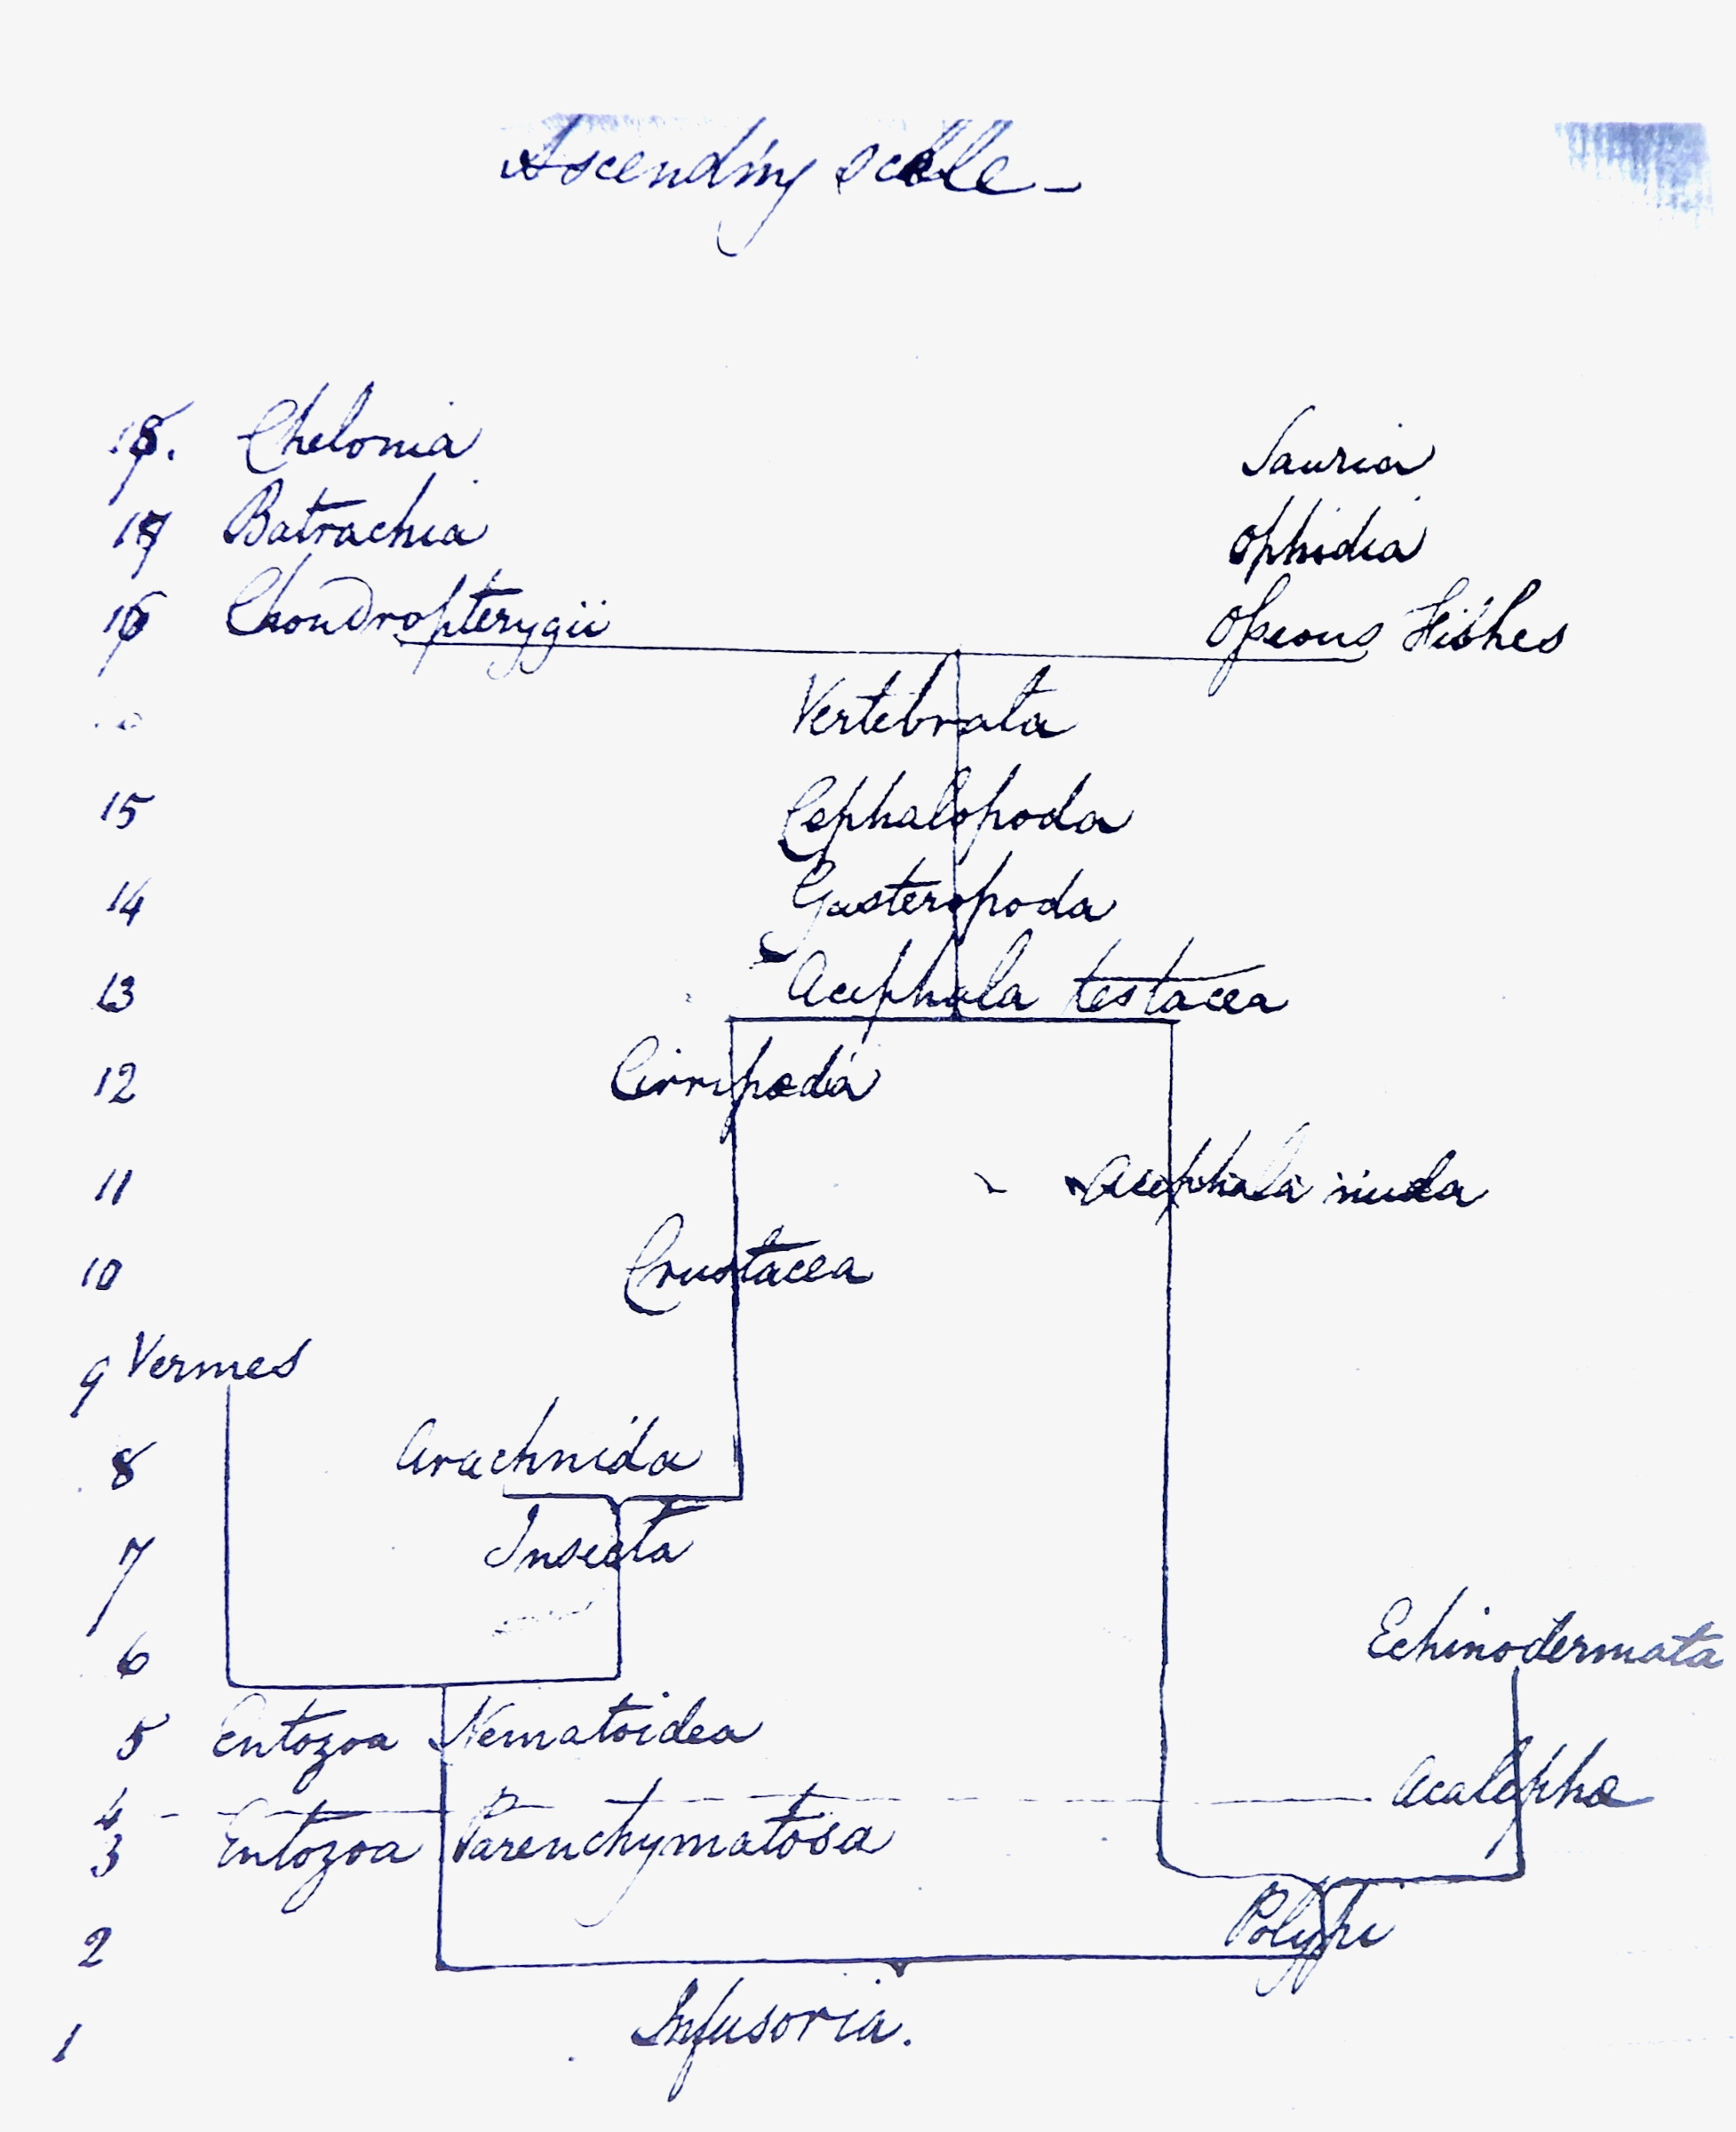 Ascending scale -
18. Chelonia Sauria
17 Batrachia Ophidia
16 Chondropterygii Osseous Fishes
Vertebrata
15 Cephalopoda
14 Gasteropoda
13 Acephala testacea
12 Cirripoda
11 Acephala nuda
10 Crustacea
9 Vermes
8 Arachnida
7 Insecta
6 Echinodermata
5 Entozoa Nematoidea
4 - Acalepha
3 Entozoa Parenchymatosa
2 Polypi
1 Infusoria.